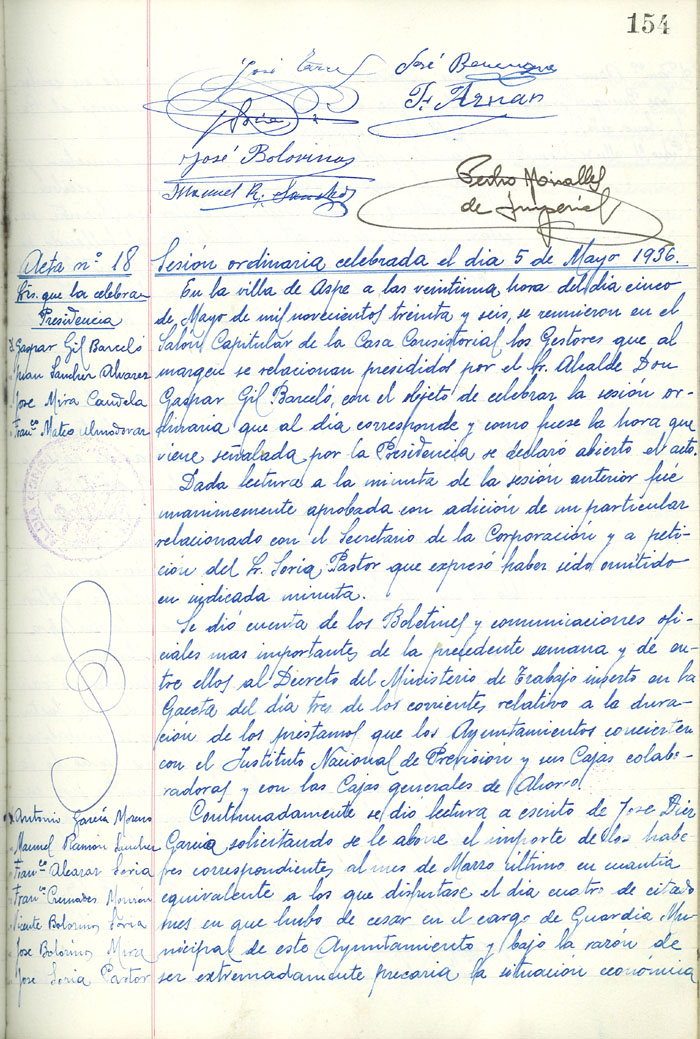 154
José
José
Soria
T. Aznar
José Bolorinos
Manuel R. Sánchez
Pedro Miralles
de Imperial
Acta nº 18
Sres. que la celebran
Presidencia
D. Gaspar Gil Barceló
" Juan Sánchez Alvarez
" Jose Mira Candela
" Franco Mateo Almodovar
Sesión ordinaria celebrada el dia 5 de Mayo 1936.
En la villa de Aspe a las veintiuna hora del dia cinco
de Mayo de mil novecientos treinta y seis, se reunieron en el
Salón Capitular de la Casa Consistorial los Gestores que al
margen se relacionan presididos por el Sr. Alcalde Don
Gaspar Gil Barceló, con el objeto de celebrar la sesión or-
dinaria que al día corresponde y como fuese la hora que
viene señalada por la Presidencia se declaró abierto el acto.
Dada lectura a la minuta de la sesión anterior fué
unanimemente aprobada con adición de un particular
relacionado con el Secretario de la Corporación y a peti-
cion del Sr. Soria Pastor que expresó haber sido omitido
en indicada minuta.
Se dió cuenta de los Boletines y comunicaciones ofi-
ciales mas importantes de la precedente semana y de en-
tre ellos al Decreto del Ministerio de Trabajo inserto en la
Gaceta del día tres de los corrientes relativo a la dura-
cion de los préstamos que los Ayuntamientos concierten
con el Instituto Nacional de Previsión y sus Cajas colabo-
radoras y con las Cajas generales de Ahorro.
Continuadamente se dió lectura a escrito de Jose Diez
Garcia solicitando se le abone el importe de los habe-
res correspondientes al mes de Marzo último en cuantia
equivalente a los que disfrutase el día cuatro de citado
mes en que hubo de cesar en el cargo de Guardia Mu-
nicipal de este Ayuntamiento y bajo la razón de
ser extremadamente precaria la situación económica
" Antonio García Moreno
" Manuel Ramón Sánchez
" Franco Alcaraz Soria
" Franco Cremades
" Vicente Bolorinos Soria
" Jose Bolorinos Mira
" Jose Soria Pastor